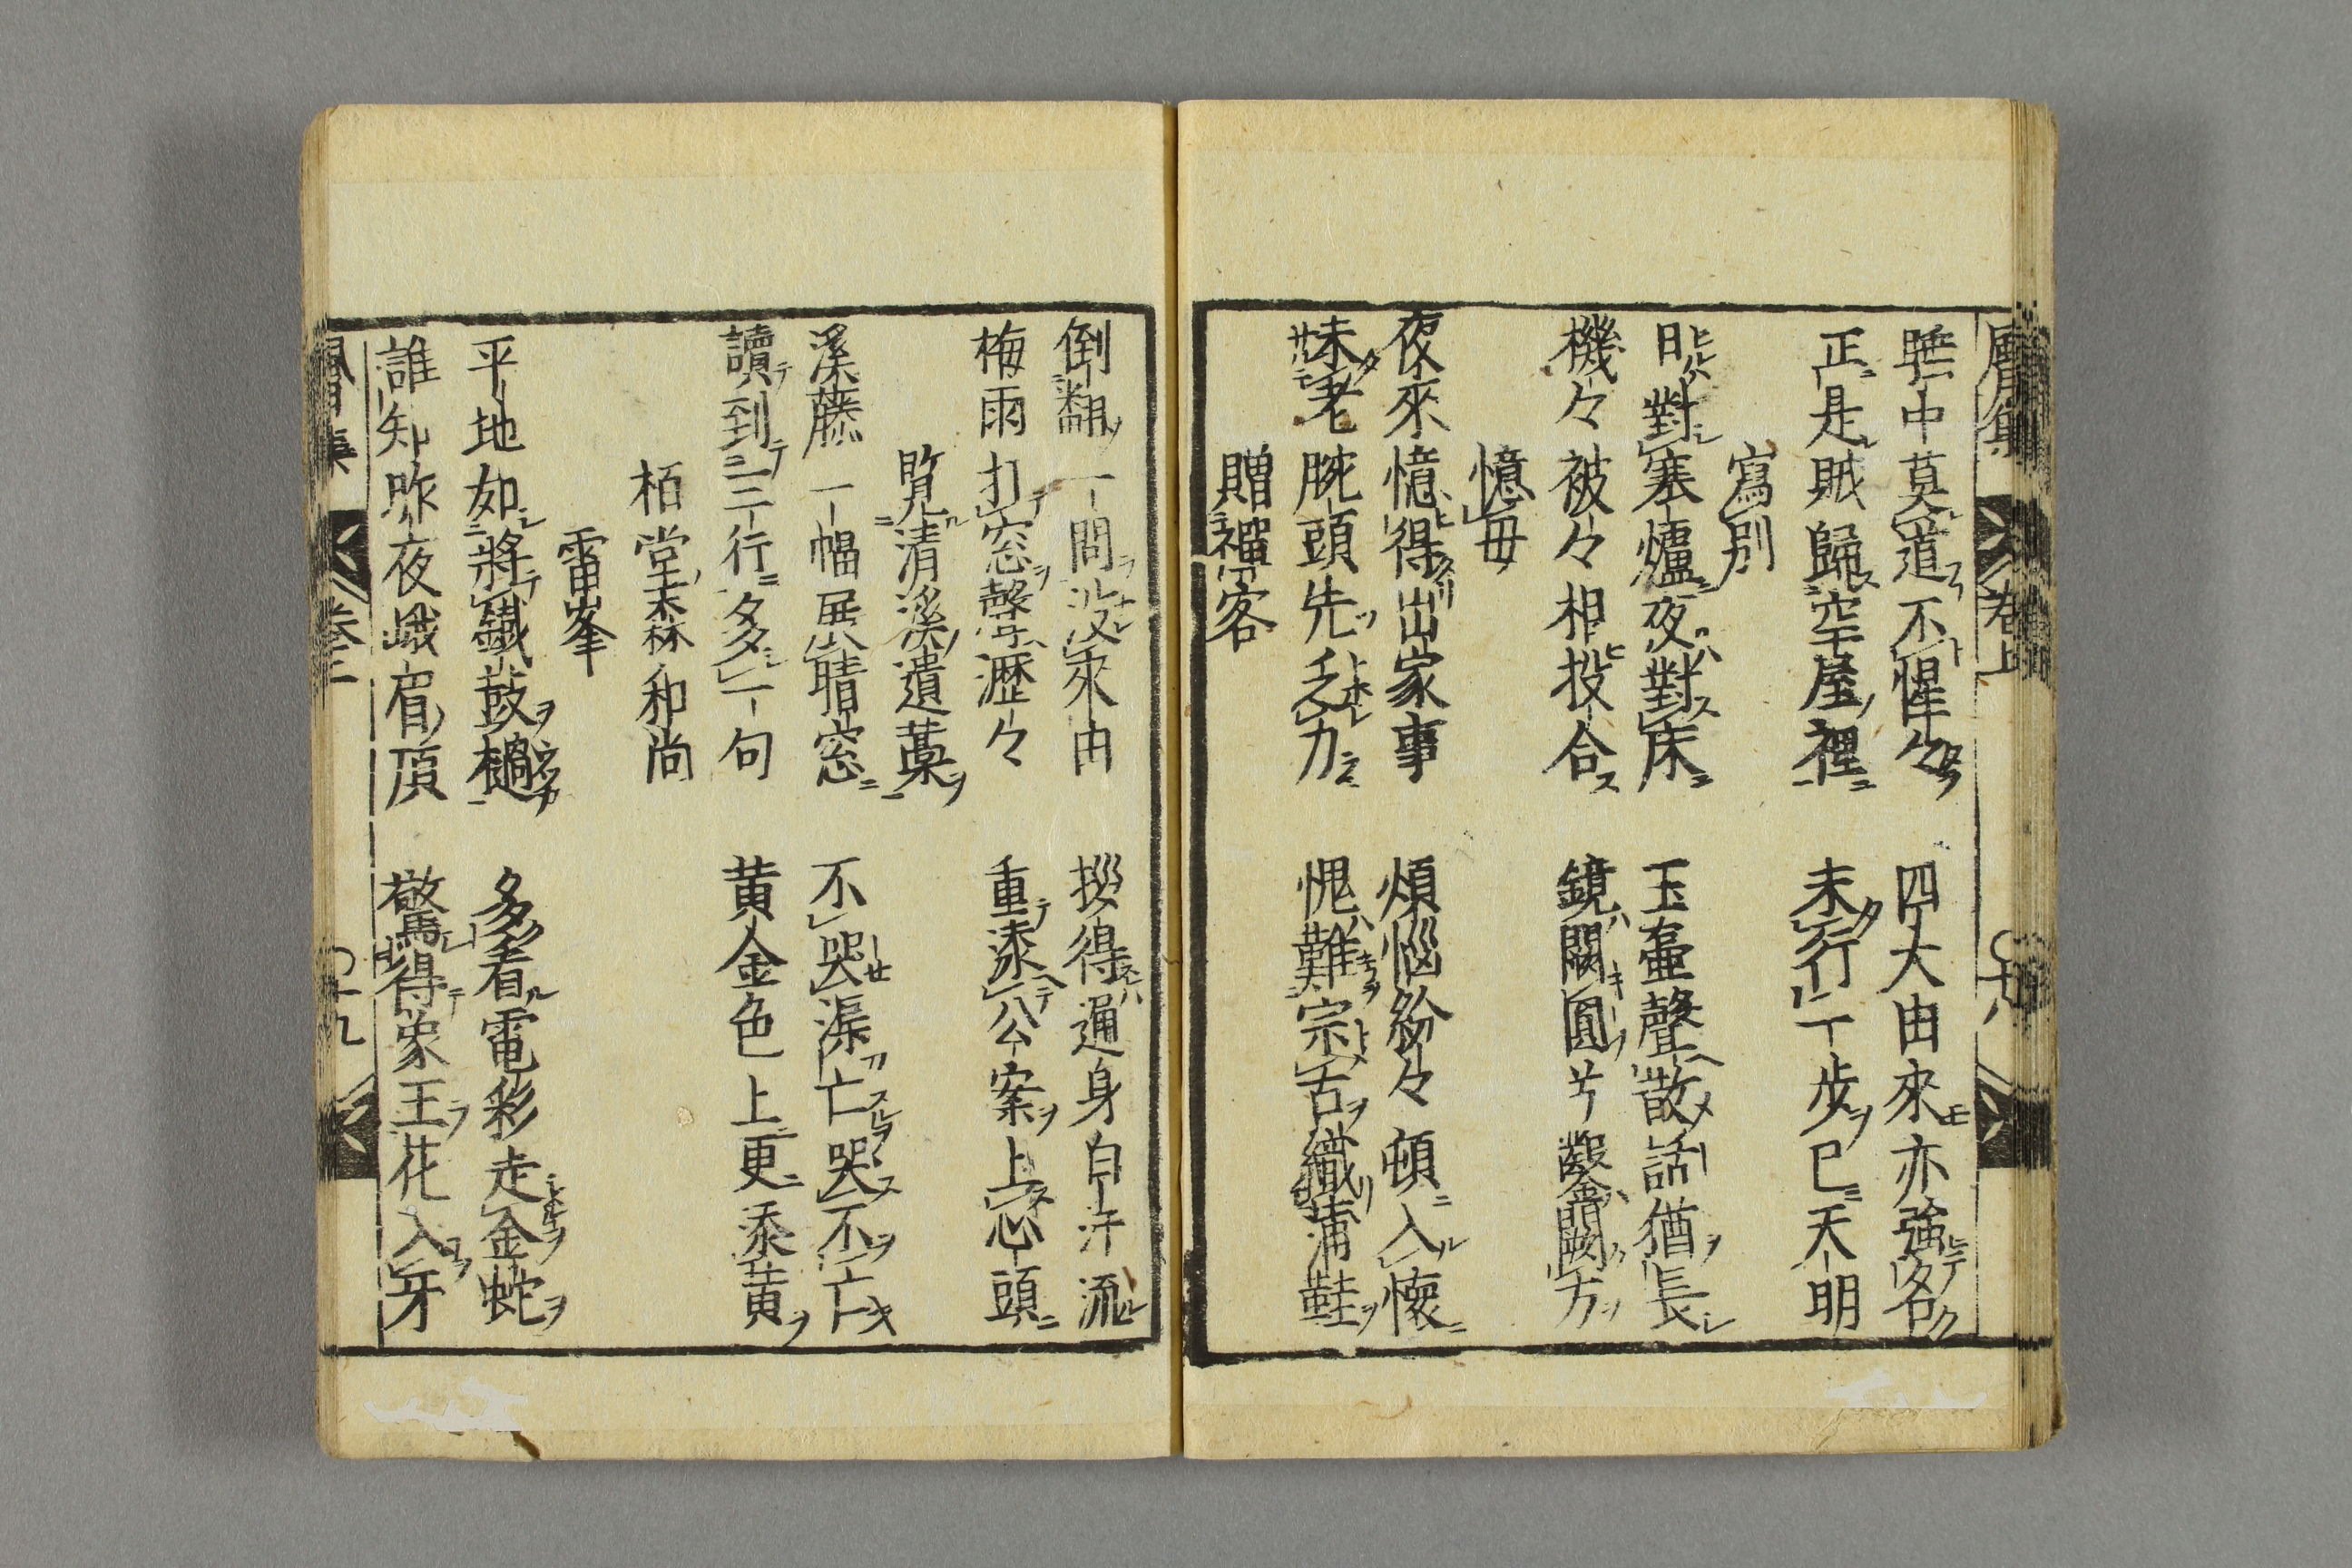 睡中莫道不惺々　四大由來亦強名
正是賊歸空屋裡　未行一步已天明
寫別
日對塞爐夜對床　玉壷聲散話猶長
機々被々相投合　鏡闕圓兮鑿闕方
憶毋
夜來憶得出家事　煩惱紛々頓入懷
未老腕頭先乏力　愧難宗舌織蒲鞋
贈禪客
倒翻一問沒來由　拶得通身白汗流
梅雨打窓聲瀝々　重漆公案上心頭
覽清溪遺藁
溪藤一幅展晴窓　不哭渠亡哭不亡
讀到二三行多一句　黄金色上更添黄
栢堂森和尚
雷峯
平地如將鐵鼓檛　多看電彩走金蛇
誰知昨夜峨眉頂　驚得象王花入牙
卷上
十九